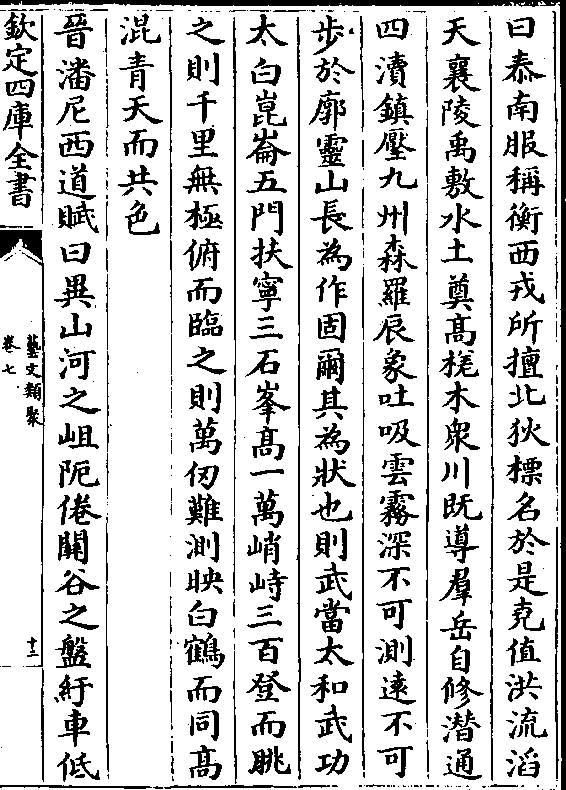 曰泰南服稱衡西戎所擅北狄標名於是堯值洪流滔
天襄陵禹敷水土奠髙栞木衆川既導羣岳自修潛通
四瀆鎮壓九州森羅辰象吐吸雲霧深不可測逺不可
步於廓靈山長為作固爾其為狀也則武當太和武功
太白崑崙五門扶寧三石峯髙一萬峭峙三百登而眺
之則千里無極俯而臨之則萬仞難測映白鶴而同髙
混青天而共色
晉潘尼西道賦曰異山河之岨阨倦闗谷之盤紆車低
欽定四庫全書
藝文類聚
卷七
十三